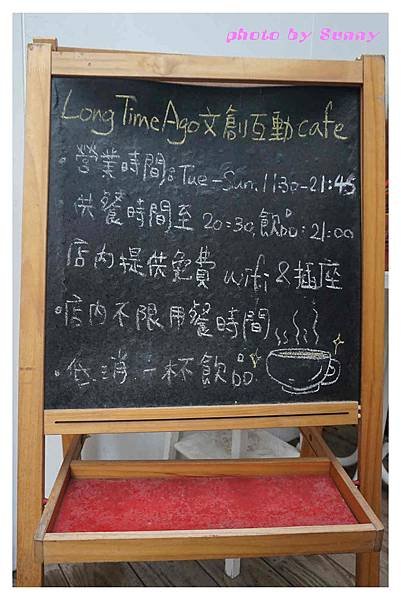 photo by Sunny
Long Time Ago 文創互動 cafe
·營業時間:Tue-Sun.1130-21:45
供餐時間至 20:30,飲品:21:00
店內提供免費 wifi &插座
·店內不限用餐時間
·低消一杯飲品